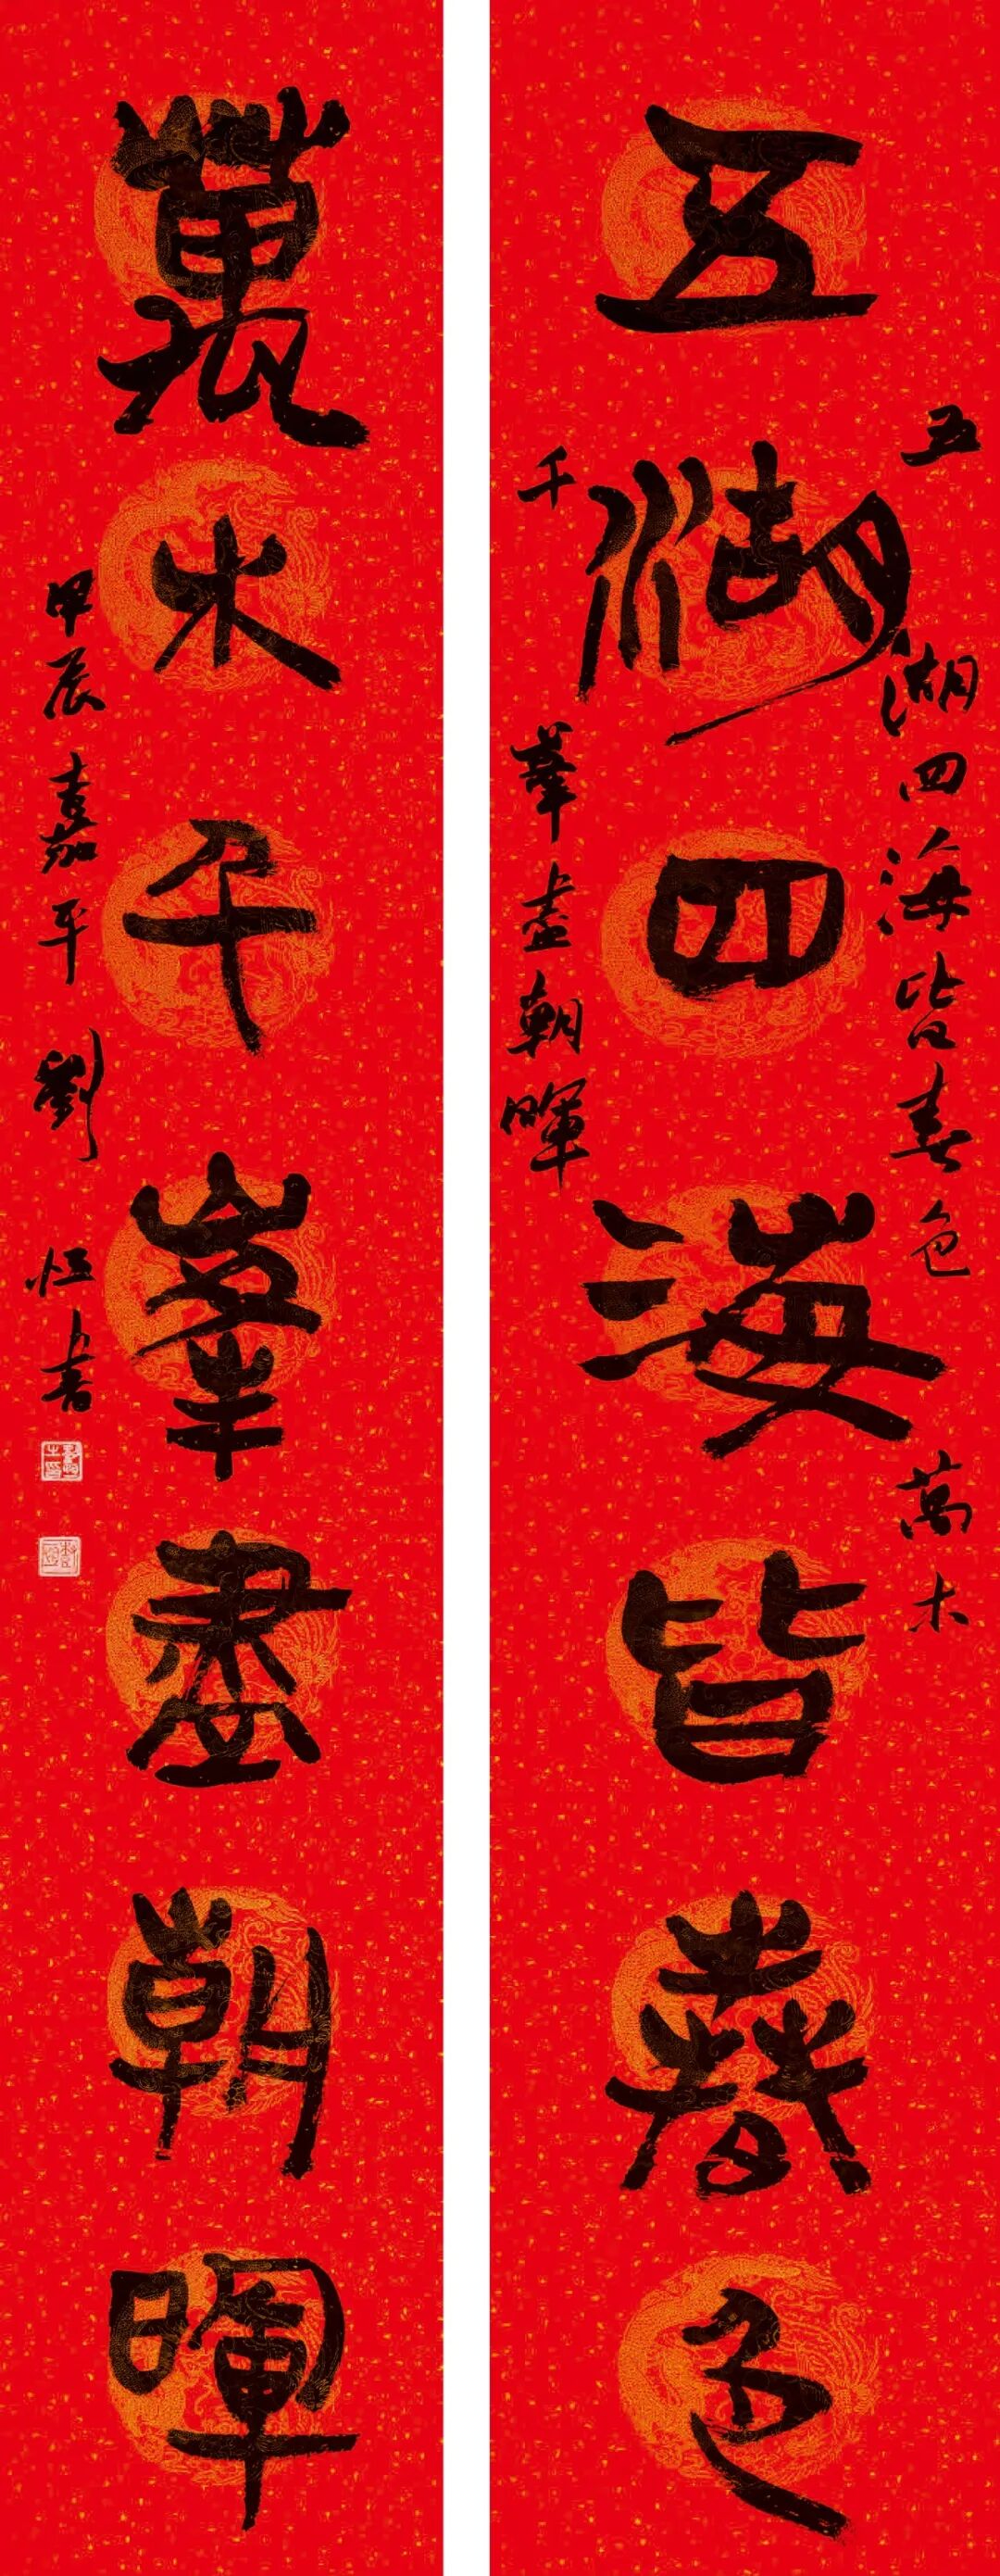 五湖四海皆春色
五湖四海皆春色 萬木
千峯盡朝暉
萬木千峯盡朝暉
甲辰嘉平 劉恒書